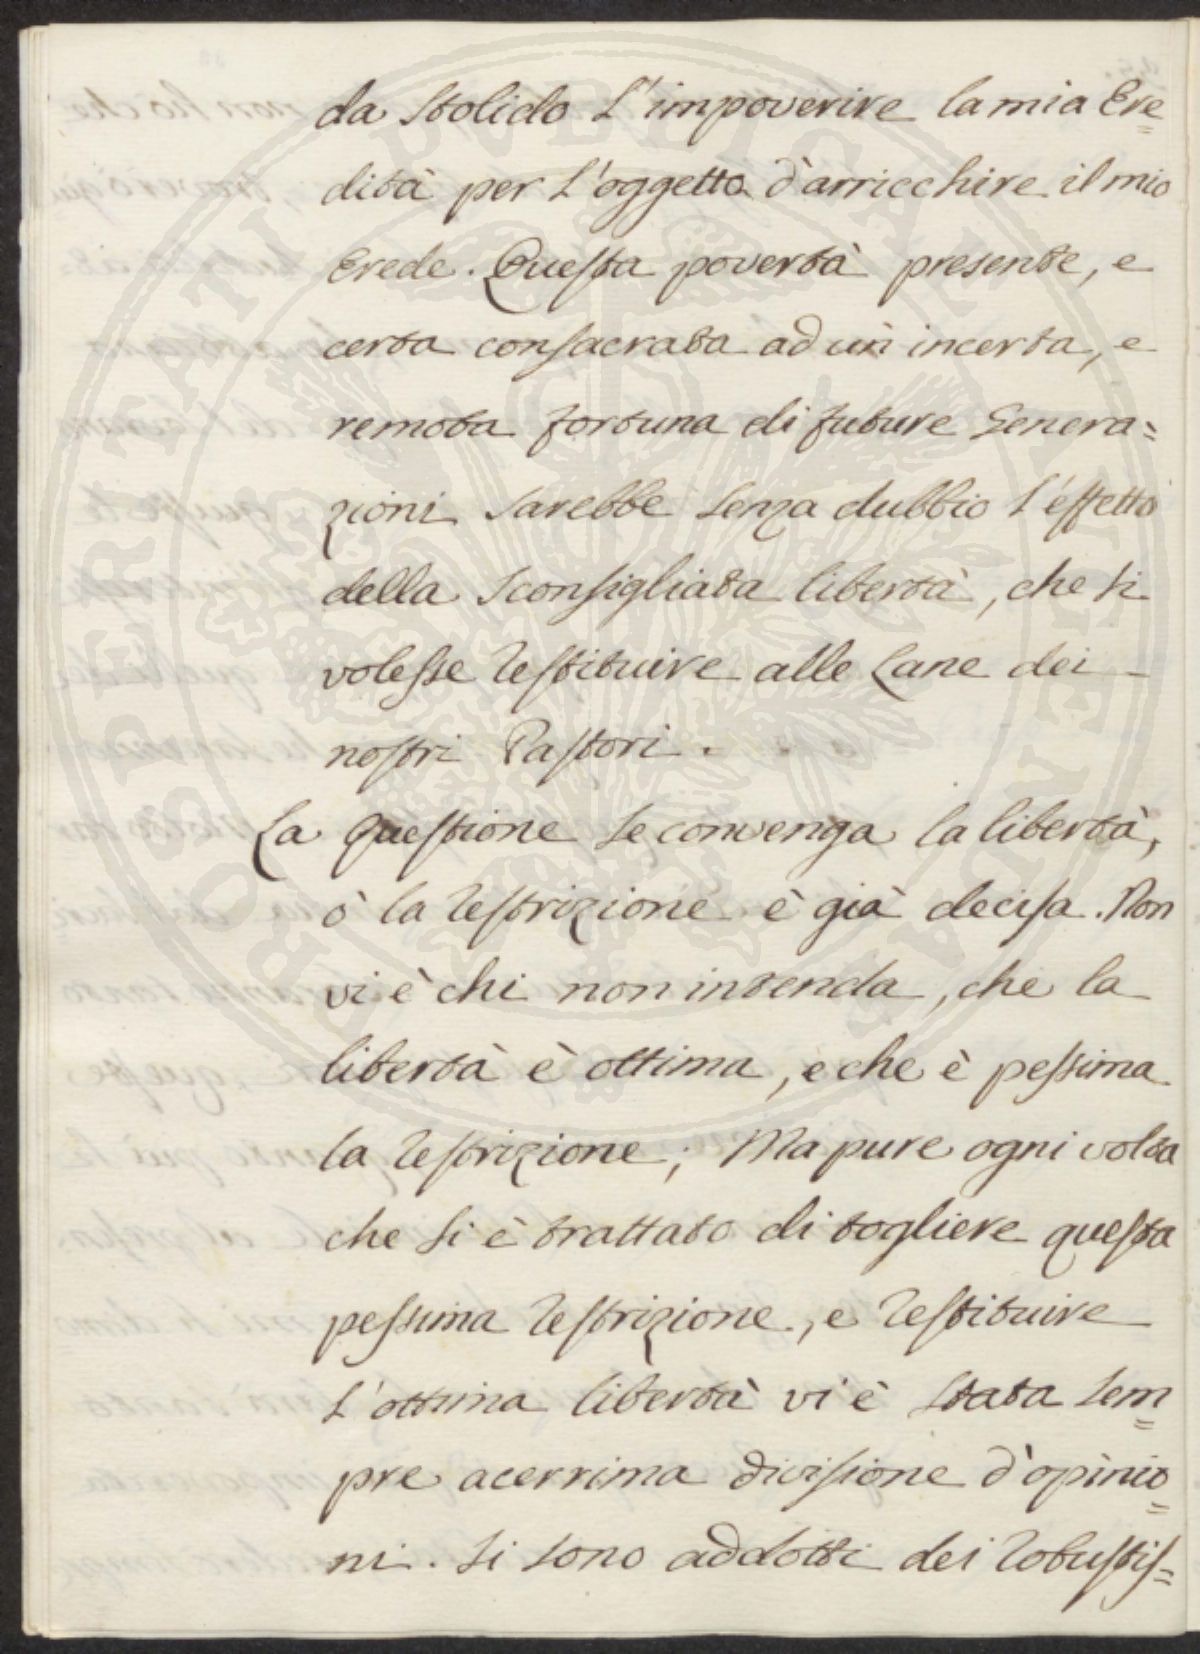 da stolido l'impoverire la mia Ere=
dità per l'oggetto d'arricchire il mio
Erede. Questa povertà presente, e
certa consacrata ad un incerta, e
remota fortuna di future Genera=
zioni sarebbe senza dubbio l'effetto
della sconsigliata libertà, che si
volesse restituire alle Lane dei
nostri Pastori.
La Questione se convenga la libertà,
ò la restrizione è già decisa. Non
vi è chi non intenda, che la
libertà è ottima, e che è pessima
la restrizione; Ma pure ogni volta
che si è trattato di togliere questa
pessima restrizione, e restituire
l'ottima libertà vi è stata sem=
pre acerrima divisione d'opinio=
ni. Si sono addotti dei robustis=
PROSPERITATI PUBLICAE AUGENDAE